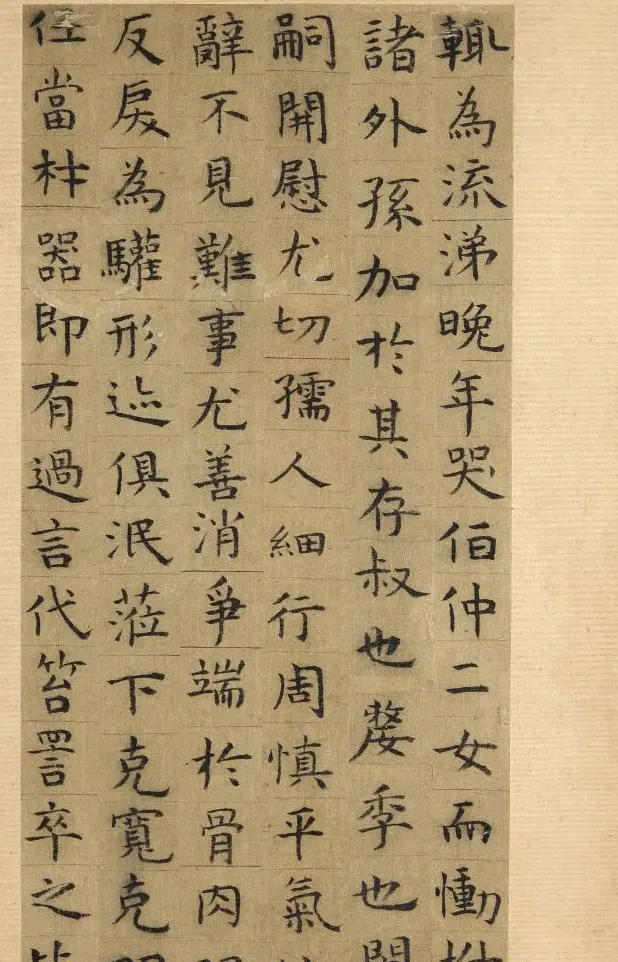 輒為流涕晚年哭伯仲二女而慟
諸外孫加於其存叔也嫠季也
嗣開慰尤切孺人細行周慎平氣
辭不見難事尤善消爭端於骨肉
反戾為驩形迹俱泯蒞下克寬克
任當材器即有過言代笞詈卒之